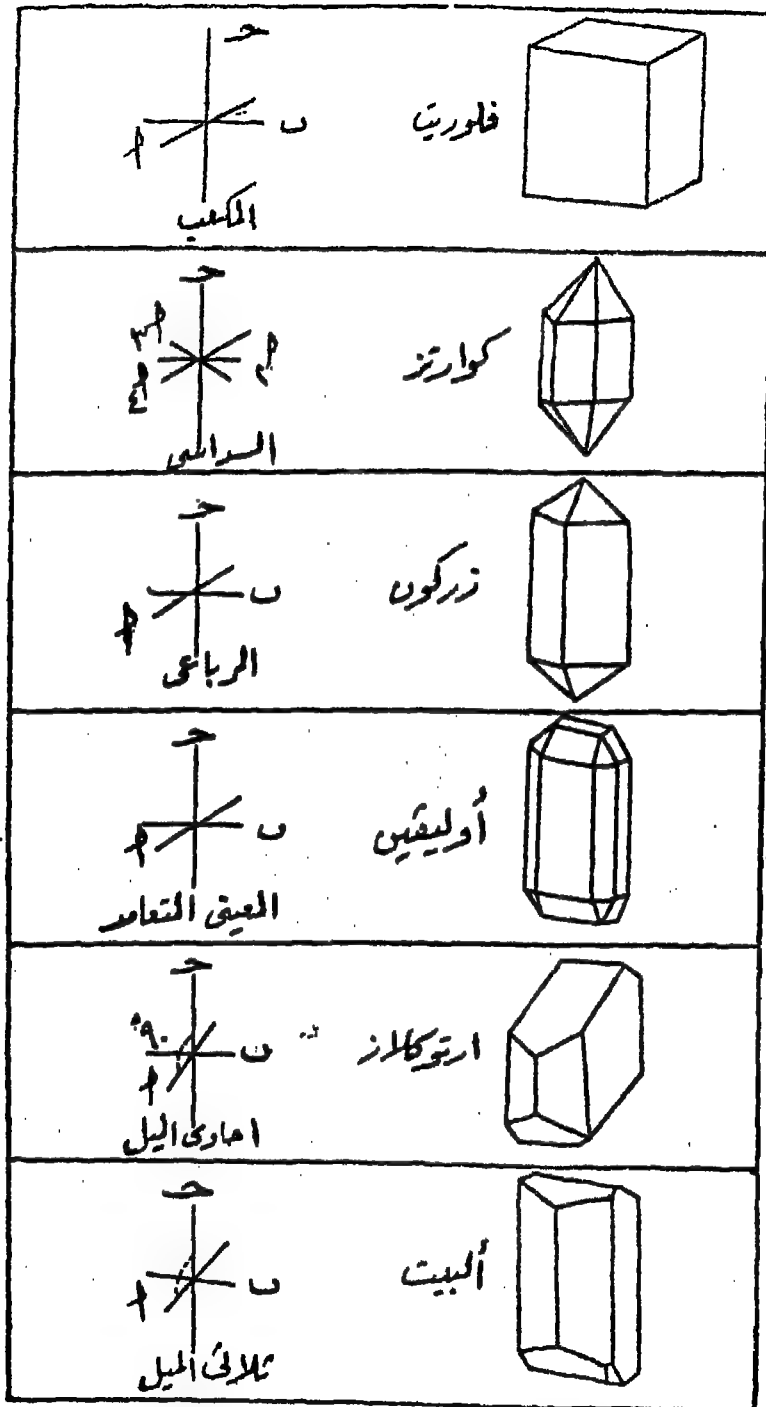 فلوريت
حـ
ب
أ
المكعب
كوارتز
حـ
أ٣
أ٢
أ٤
السداسى
زركون
حـ
ب
أ
الرباعى
أوليڤين
حـ
ب
أ
المعينى المتعامد
ارتوكلاز
حـ
٩٠°
ب
أ
احادى الميل
ألبيت
حـ
ب
أ
ثلاثى الميل